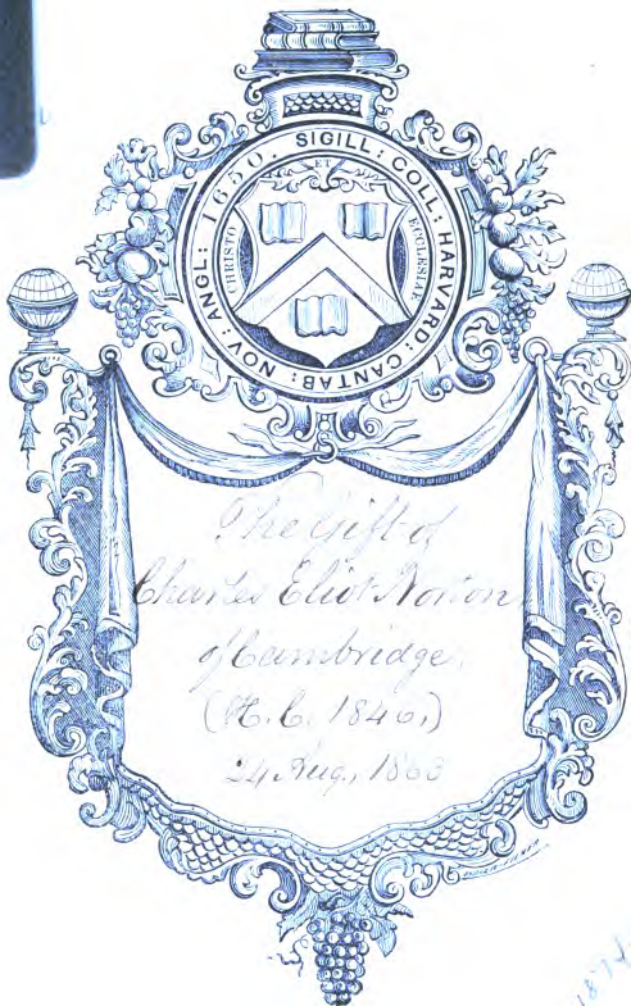 SIGILL: COLL: HARVARD: CANTAB: NOV: ANGL: 1650.
CHRISTO ET ECCLESIAE
The Gift of
Charles Eliot Norton
of Cambridge,
(H. C. 1846,)
24 Aug., 1863